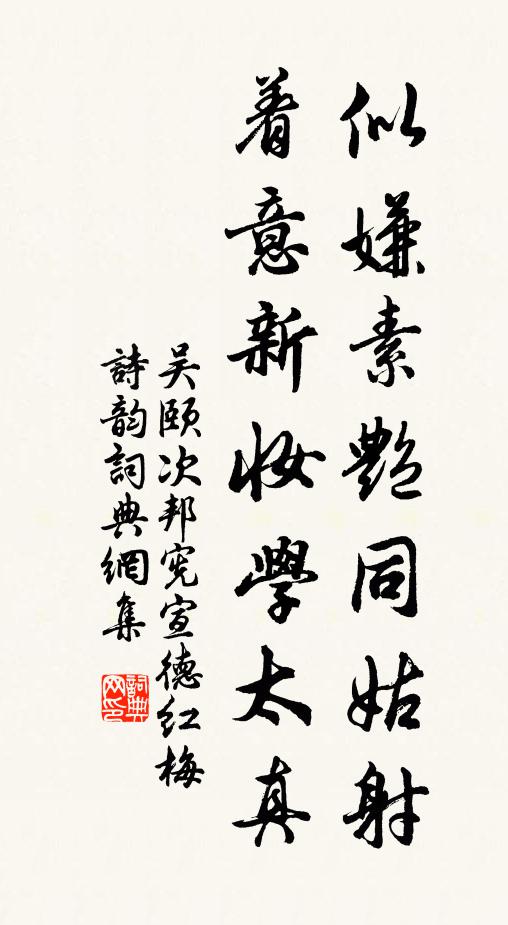 似嫌素艷同姑射
着意新妝學太真
吴頤次邦宪宣德红梅
詩韵詞典網集
詞典网印